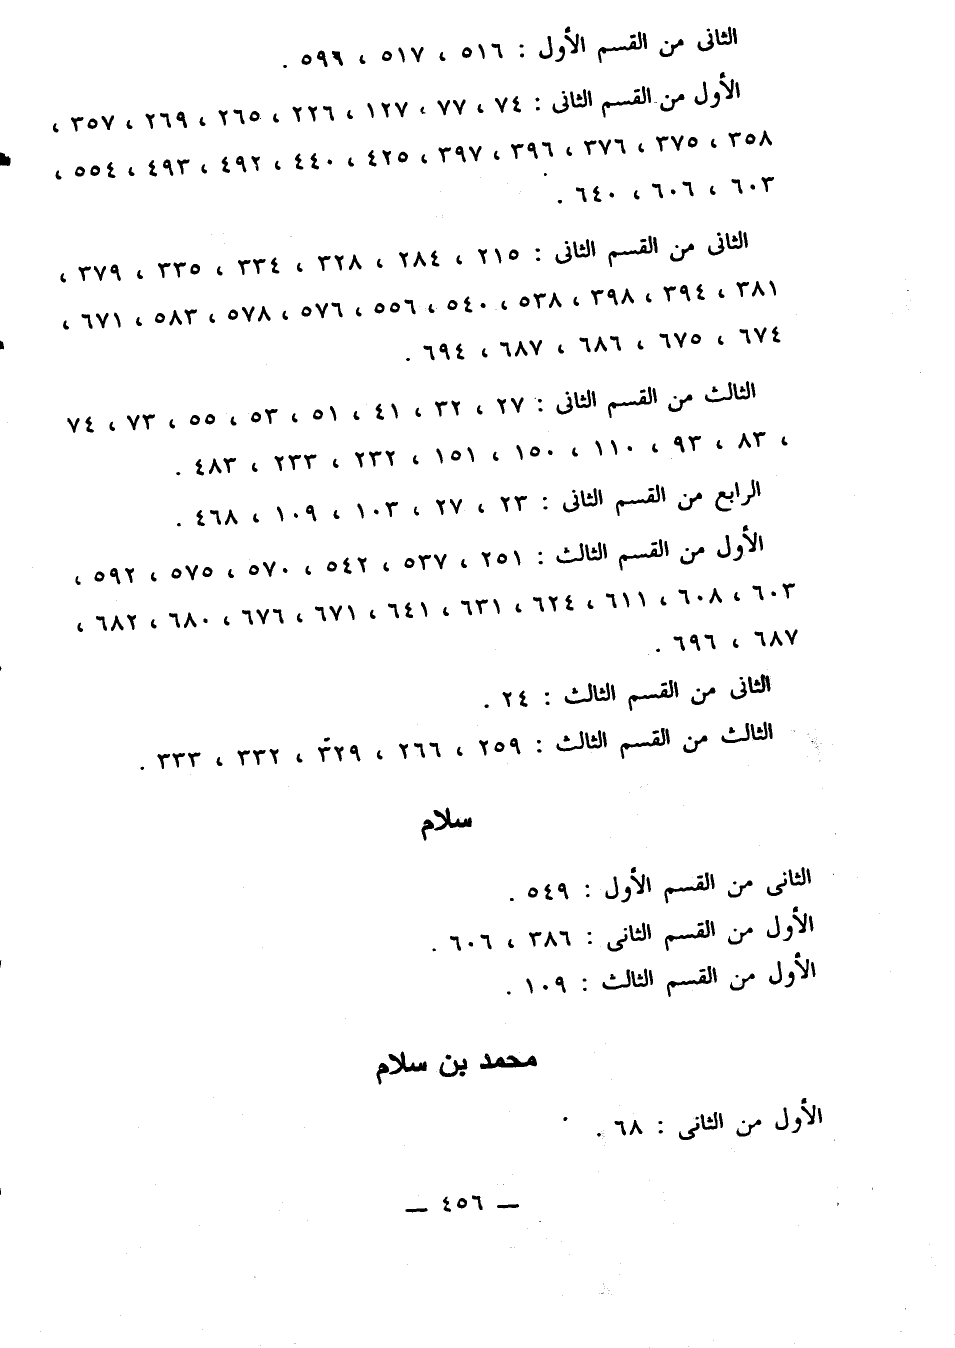 الثانى من القسم الأول : ٥١٦ ، ٥١٧ ، ٥٩٩ .
الأول من القسم الثانى : ٧٤ ، ٧٧ ، ١٢٧ ، ٢٢٦ ، ٢٦٥ ، ٢٦٩ ، ٣٥٧ ،
٣٥٨ ، ٣٧٥ ، ٣٧٦ ، ٣٩٦ ، ٣٩٧ ، ٤٢٥ ، ٤٤٠ ، ٤٩٢ ، ٤٩٣ ، ٥٥٤ ،
٦٠٣ ، ٦٠٦ ، ٦٤٠ .
الثانى من القسم الثانى : ٢١٥ ، ٢٨٤ ، ٣٢٨ ، ٣٣٤ ، ٣٣٥ ، ٣٧٩ ،
٣٨١ ، ٣٩٤ ، ٣٩٨ ، ٥٣٨ ، ٥٤٠ ، ٥٥٦ ، ٥٧٦ ، ٥٧٨ ، ٥٨٣ ، ٦٧١ ،
٦٧٤ ، ٦٧٥ ، ٦٨٦ ، ٦٨٧ ، ٦٩٤ .
الثالث من القسم الثانى : ٢٧ ، ٣٢ ، ٤١ ، ٥١ ، ٥٣ ، ٥٥ ، ٧٣ ، ٧٤
، ٨٣ ، ٩٣ ، ١١٠ ، ١٥٠ ، ١٥١ ، ٢٣٢ ، ٢٣٣ ، ٤٨٣ .
الرابع من القسم الثانى : ٢٣ ، ٢٧ ، ١٠٣ ، ١٠٩ ، ٤٦٨ .
الأول من القسم الثالث : ٢٥١ ، ٥٣٧ ، ٥٤٢ ، ٥٧٠ ، ٥٧٥ ، ٥٩٢ ،
٦٠٣ ، ٦٠٨ ، ٦١١ ، ٦٢٤ ، ٦٣١ ، ٦٤١ ، ٦٧١ ، ٦٧٦ ، ٦٨٠ ، ٦٨٢ ،
٦٨٧ ، ٦٩٦ .
الثانى من القسم الثالث : ٢٤ .
الثالث من القسم الثالث : ٢٥٩ ، ٢٦٦ ، ٣٢٩ ، ٣٣٢ ، ٣٣٣ .
سلام
الثانى من القسم الأول : ٥٤٩ .
الأول من القسم الثانى : ٣٨٦ ، ٦٠٦ .
الأول من القسم الثالث : ١٠٩ .
محمد بن سلام
الأول من الثانى : ٦٨ .
— ٤٥٦ —